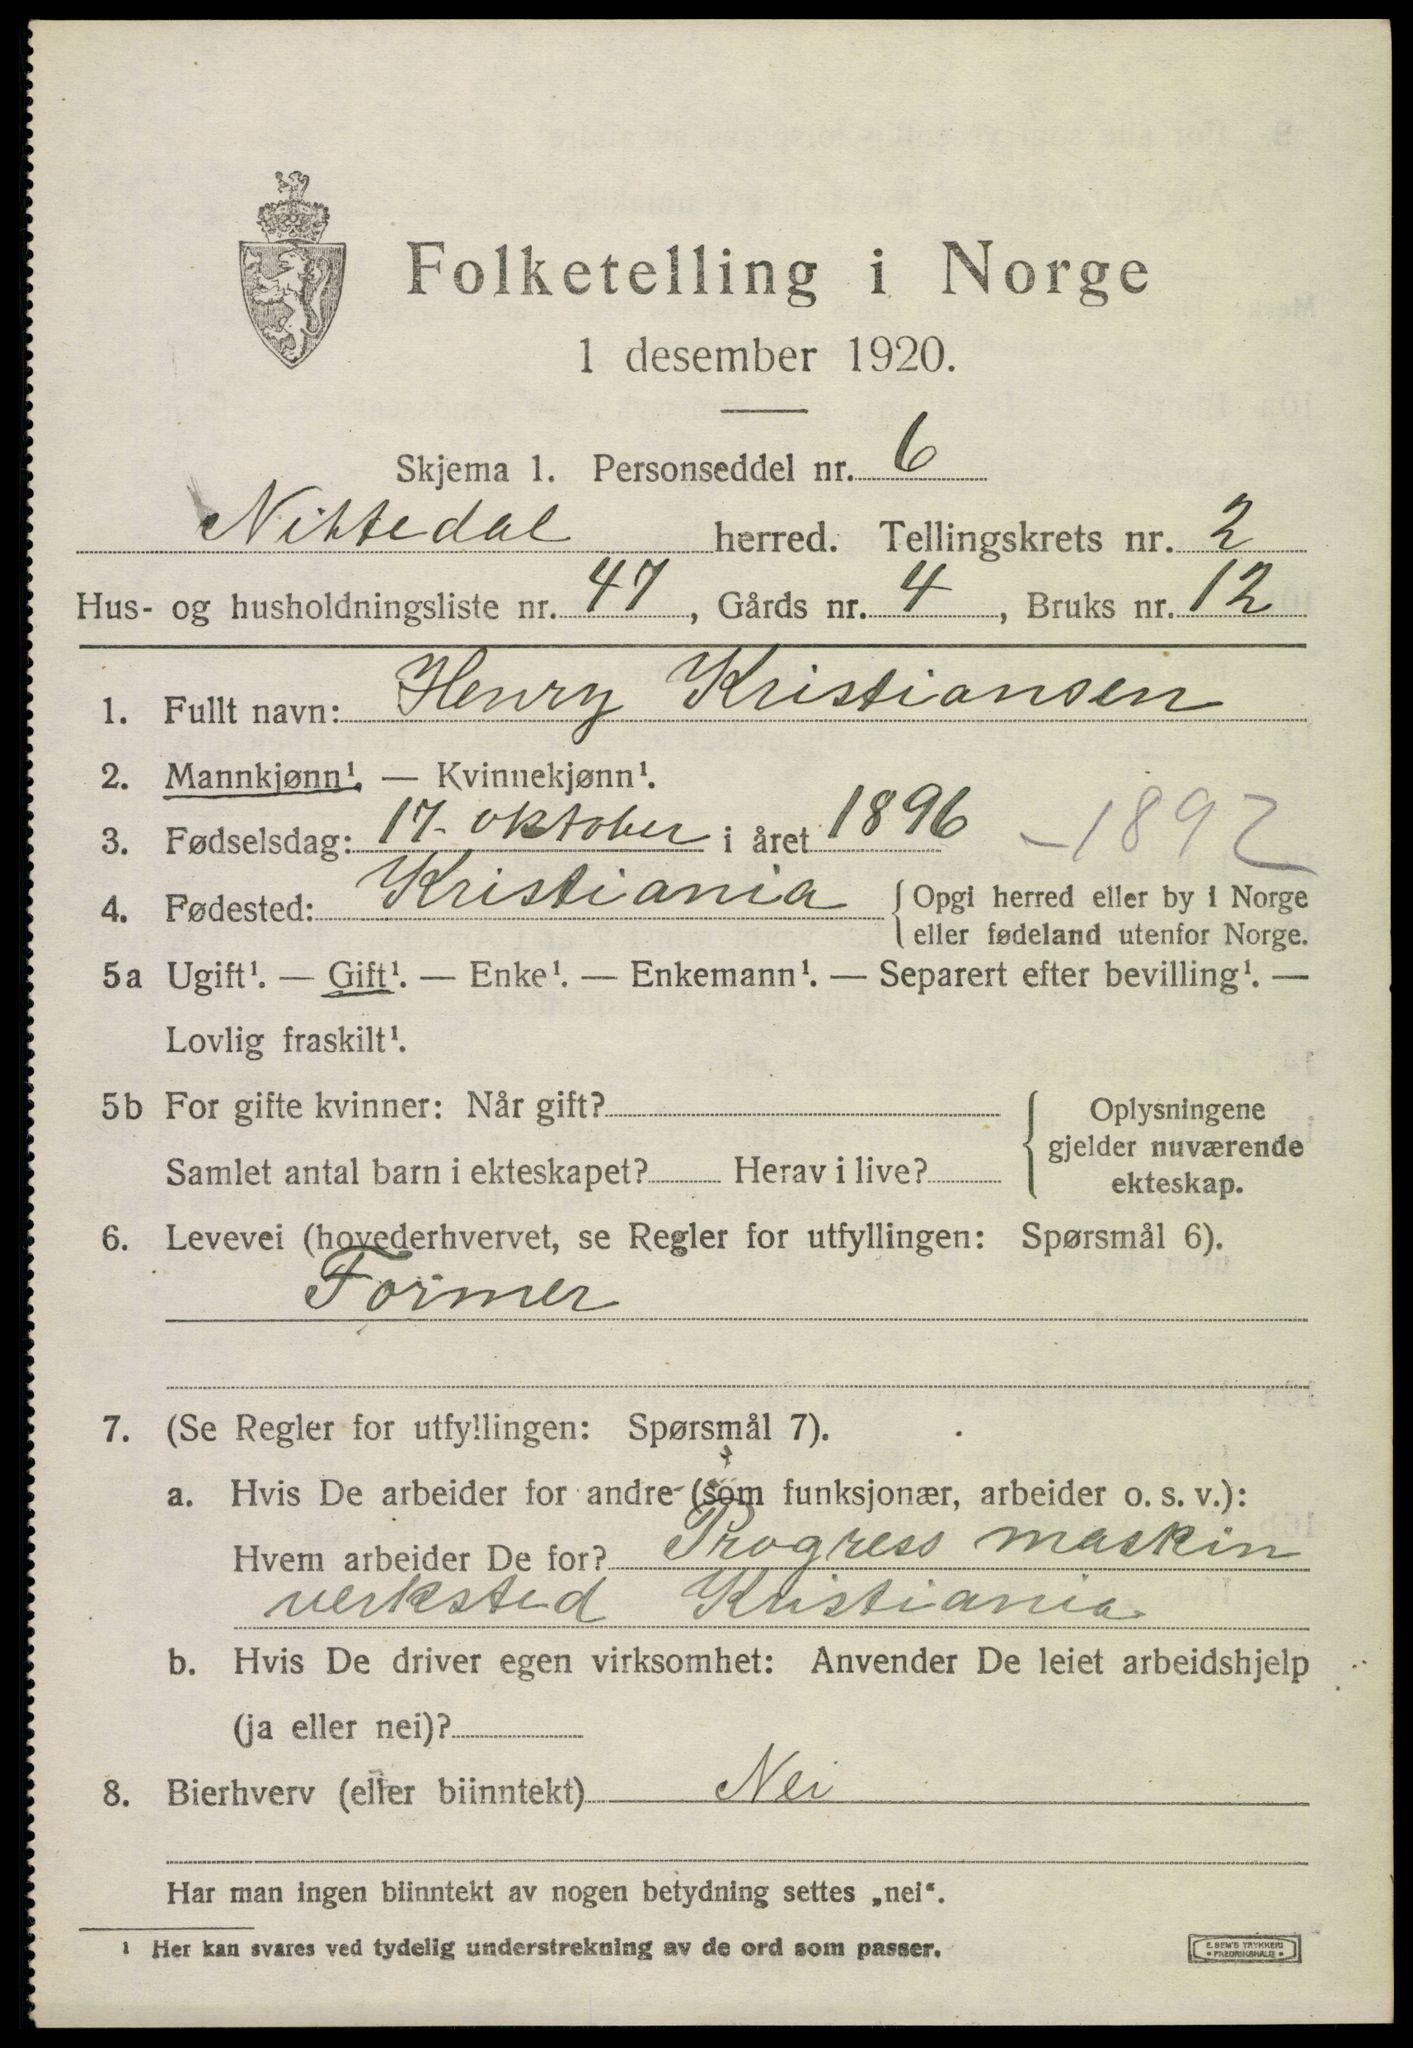 Folketelling i Norge
1 desember 1920.
Skjema 1. Personseddel nr. 6
Nittedal herred. Tellingskrets nr. 2
Hus- og husholdningsliste nr. 47, Gårds nr. 4, Bruks nr. 12
1. Fullt navn: Henry Kristiansen
2. Mannkjønn¹. — Kvinnekjønn¹.
3. Fødselsdag: 17. oktober i året 1896 - 1892
4. Fødested: Kristiania { Opgi herred eller by i Norge
eller fødeland utenfor Norge.
5a Ugift¹. — Gift¹. — Enke¹. — Enkemann¹. — Separert efter bevilling¹. —
Lovlig fraskilt¹.
5b For gifte kvinner: Når gift?
Samlet antal barn i ekteskapet? Herav i live?
{ Oplysningene
gjelder nuværende
ekteskap.
6. Levevei (hovederhvervet, se Regler for utfyllingen: Spørsmål 6).
Former
7. (Se Regler for utfyllingen: Spørsmål 7).
a. Hvis De arbeider for andre (som funksjonær, arbeider o. s. v.):
Hvem arbeider De for? Progress maskin
verksted Kristiania
b. Hvis De driver egen virksomhet: Anvender De leiet arbeidshjelp
(ja eller nei)?
8. Bierhverv (eller biinntekt) Nei
Har man ingen biinntekt av nogen betydning settes „nei“.
¹ Her kan svares ved tydelig understrekning av de ord som passer.
E. SEM'S TRYKKERI
• FREDRIKSHALD •